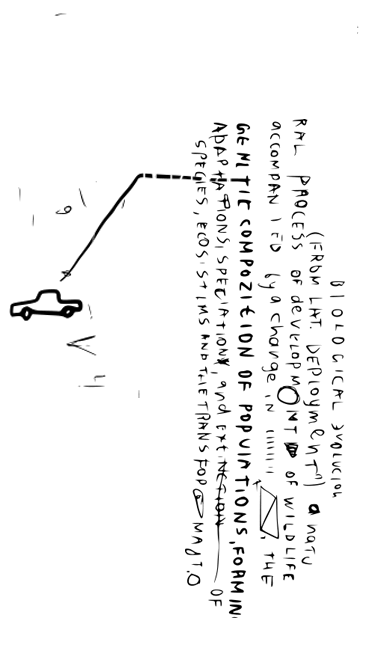 BIOLOGICAL evolucion
(FROM LAT. DEPLOYmENT") a natu
RAL PROCESS OF devELOPMONT OF WILDLIFE
accOMPANIED by a change IN THE
GENETIC COMPOZITION OF POPULATIONS, FORMIN
ADAPTATIONS, SPECIATION, and EXTINCTION OF
SPECIES, ECOSISTEMS AND THE TRANSFOR MATIO
9